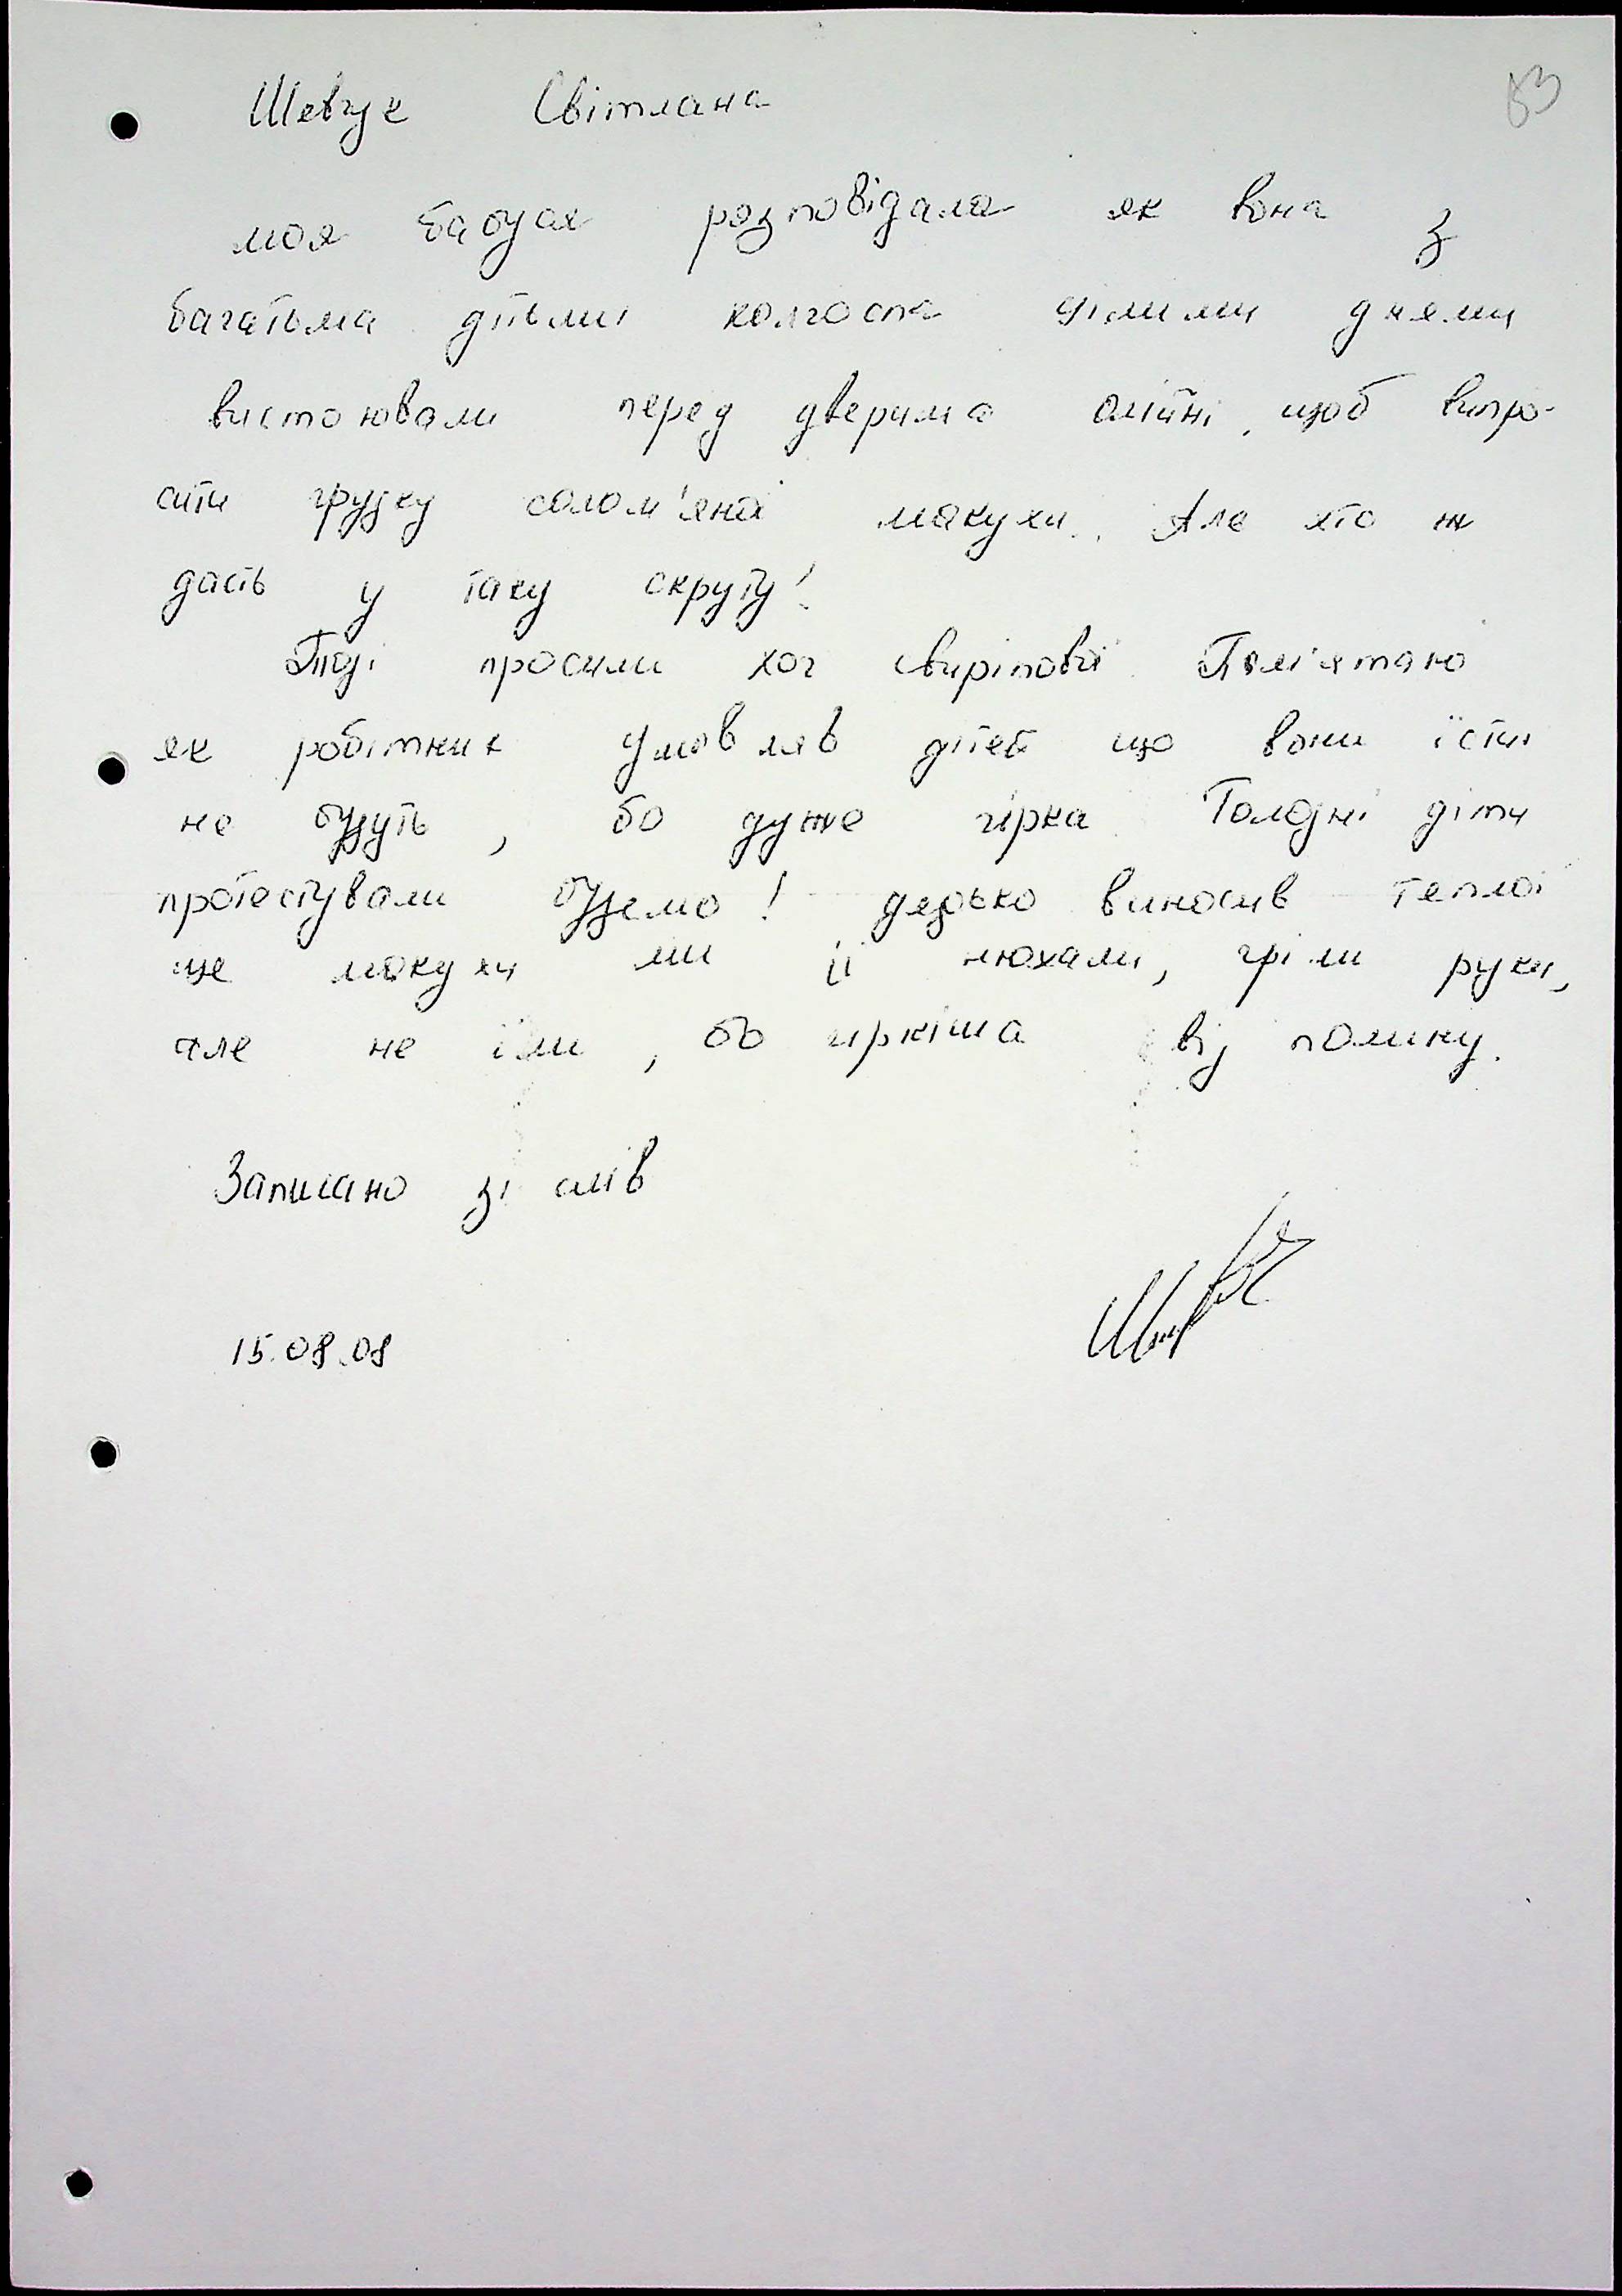 83
Шевчук Світлана
моя бабуся розповідала як вона з
багатьма дітьми колгоспа цілими днями
вистоювали перед дверима олійні, щоб випро-
сити грудку солом'яної макухи. Але хто ж
дасть у таку скруту!
Тоді просили хоч свиріпової. Пам'ятаю
як робітник умовляв дітей що вони їсти
не будуть, бо дуже гірка. Голодні діти
протестували будемо! дядько виносив теплої
ще макухи ми її нюхали, гріли руки,
але не їли, бо гіркіша від полину.
Записано зі слів
15.08.08